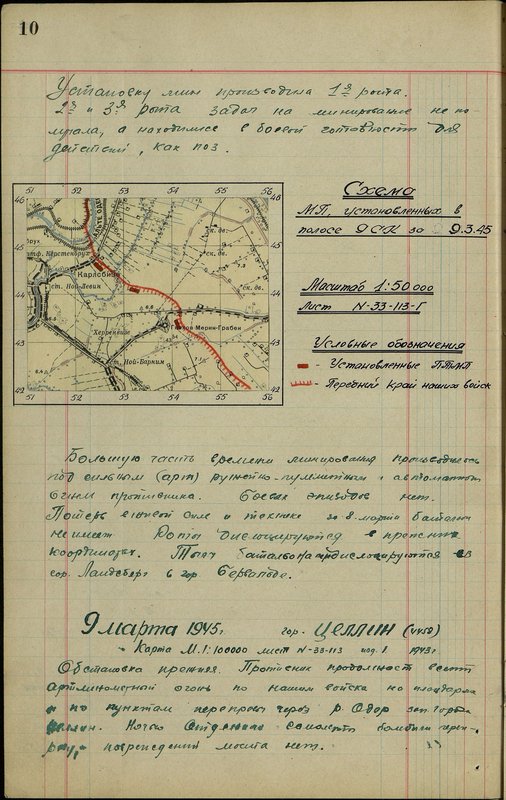 10
Установку мин производила 1я рота.
2я и 3я рота задач на минирование не по-
лучала, а находились в боевой готовности для
действий, как поз.
51 52 53 54 55 56
46
45
44
43
42
Карлсбизе
ст. Ной-Левин
Херренвизе
Гюстебизер
ст. Ной-Барним
51 52 53 54 55 56
Схема
МП, установленных в
полосе 9 СК за 9.3.45
Масштаб 1:50 000
Лист N-33-113-Г
Условные обозначения
- Установленные ПТМП
- Передний край наших войск
Большую часть времени минирования производилось
под сильным (арт) ружейно-пулеметным и автоматным
огнем противника. Боевых эпизодов нет.
Потерь в живой силе и технике за 8 марта батальон
не имеет. Роты дислоцируются в прежних
координатах. Тыл батальона передислоцируется из
гор. Ландсберг в гор. Бервальде.
9 марта 1945г. гор. Целлин (4458)
Карта М. 1:100000 лист N-33-113 изд. 1943г.
Обстановка прежняя. Противник продолжает вести
артминометный огонь по нашим войскам на плацдарме
и по пунктам переправы через р. Одер зап. гор.
Целлин. Ночью самолеты бомбили переп-
раву, повреждений моста нет.